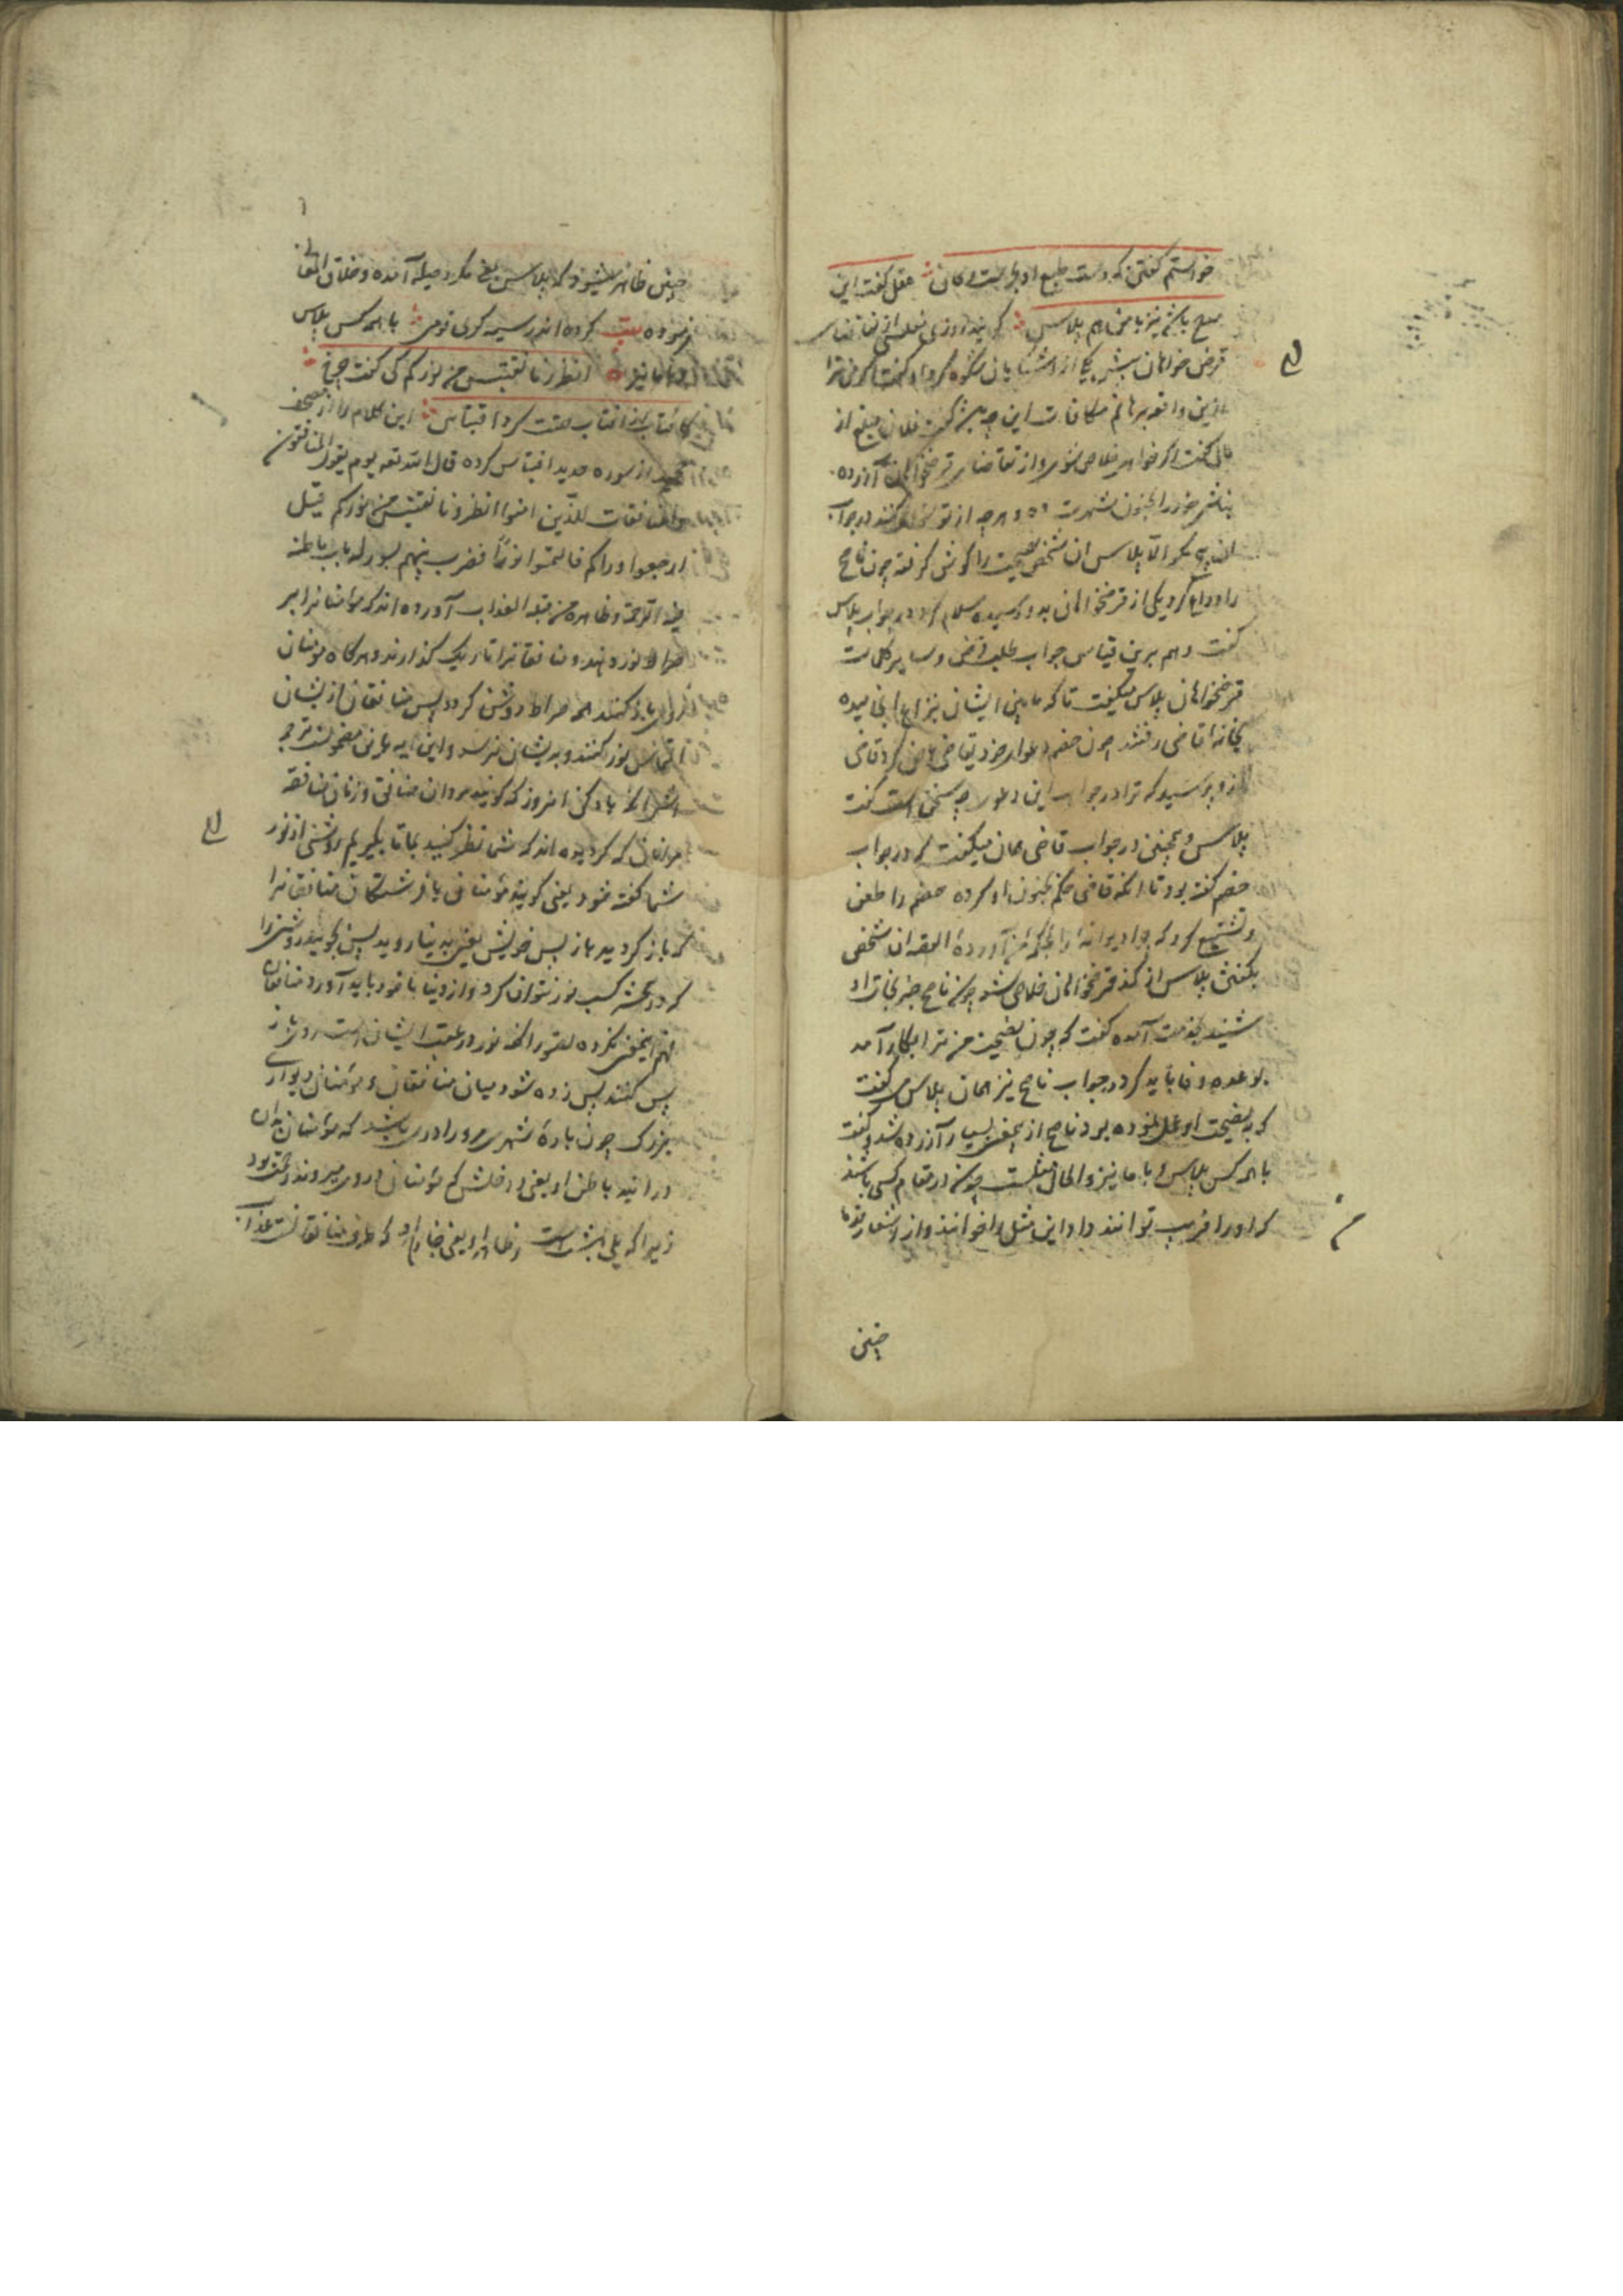 خواستم گفتن که دست طبع او بحر است و کان عقل گفت این
مدح باشد نیز با من هم پلاس گویند روزی مفلسی از تقاضای
قرض خواهان پیش یکی از آشنایان شکوه کرد او گفت اگر من ترا
ازین واقعه برهانم مکافات این چه باشد گفت فلان مبلغ از
مال گفت اگر خواهی خلاص شوی و از تقاضای قرضخواهان آزرده
نباشی خود را بجنون شهرت ده و هر چه از تو سؤال کنند در جواب
آن هیچ مگو الا پلاس آن شخص نصیحت را گوش گرفته چون ناصح
را وداع کرد یکی از قرضخواهان بدو رسیده سلام کرد در جواب پلاس
گفت و هم برین قیاس جواب طلب قرض و سایر کلمات
قرضخواهان پلاس میگفت تا که مابین ایشان بنزاع انجامیده
بخانه قاضی رفتند چون خصم دعوای خود بقاضی عرض کرد قاضی
ازو پرسید که ترا در جواب این دعوی چه سخن است گفت
پلاس و همچنین در جواب قاضی همان میگفت که در جواب
خصم گفته بود تا آنکه قاضی حکم بجنون او کرده خصم را طعن
و تشنیع کرد که چرا دیوانه را بمحکمه من آورده القصه آن شخص
بگفتن پلاس از کمند قرضخواهان خلاص شد چون ناصح خبر نجات او
شنید بخدمت آمده گفت که چون نصیحت من ترا بکار آمد
بوعده وفا باید کرد در جواب ناصح نیز همان پلاس گفت
که بنصیحت او عمل نموده بود ناصح ازین معنی بسیار آزرده شد و گفت
با همه کس پلاس و با ما نیز و الحال مثلست چون در مقام کسی باشند
که او را فریب توانند داد این مثل را خوانند و از اشعار قدما
چنین
چنین ظاهر میشود که پلاس بمعنی مکر و حیله آمده و خلاق المعانی
فرموده بیت کرده اند سیه گری قومی با همه کس پلاس
با ما نیز انظرونا نقتبس من نورکم کی گفت چرخ
کافتاب از آفتاب همت کرد اقتباس این کلام را از مصحف
مجید از سوره حدید اقتباس کرده قال الله تعالی یوم یقول المنافقون
والمنافقات للذین امنوا انظرونا نقتبس من نورکم قیل
ارجعوا وراکم فالتمسوا نورا فضرب بینهم بسور له باب باطنه
فیه الرحمة و ظاهره من قبله العذاب آورده اند که مؤمنانرا بر
صراط نور دهند و منافقانرا تاریک گذارند و هر گاه مؤمنان
کنند همه صراط روشن گردد پس منافقان از ایشان
التماس نور کنند و بدیشان نرسد و این آیه
یاد کن امروز که گویند مردان منافق و زنان منافقه
مر آنان که گرویده اند که نظر کنید بما تا بگیریم روشنی از نور
شما گفته شود یعنی گویند مؤمنان یا فرشتگان منافقانرا
که باز گردید باز پس خویش یعنی بدنیا روید پس بجویید روشنی را
که در محشر کسب نور نتوان کرد و از دنیا با خود باید آورد منافقان
فهم این معنی نکرده بتصور آنکه نور در عقب ایشان است روی باز
پس کنند پس زده شود میان منافقان و مؤمنان دیواری
بزرگ چون باره شهری مر او را دری باشد که مؤمنان بدان
در آیند باطن او یعنی داخلش که مؤمنان دروی میروند رحمت بود
زیرا که پلی بهشت است و ظاهر او یعنی خارج او که طرف منافقانست عذاب